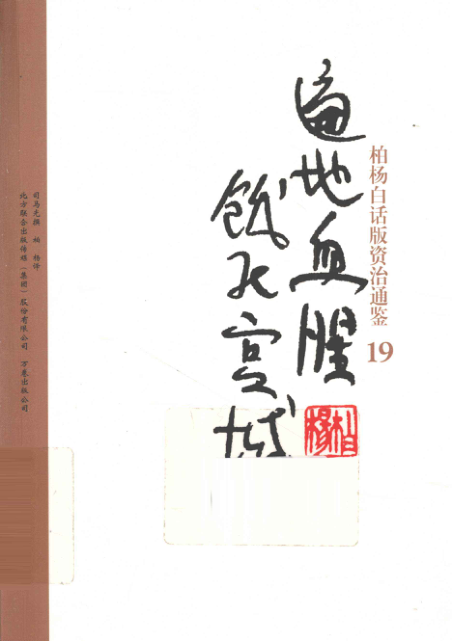 柏杨白话版资治通鉴 19
遍地血腥
餓死宫城
柏楊
司马光撰 柏 杨译
北方联合出版传媒（集团）股份有限公司 万卷出版公司